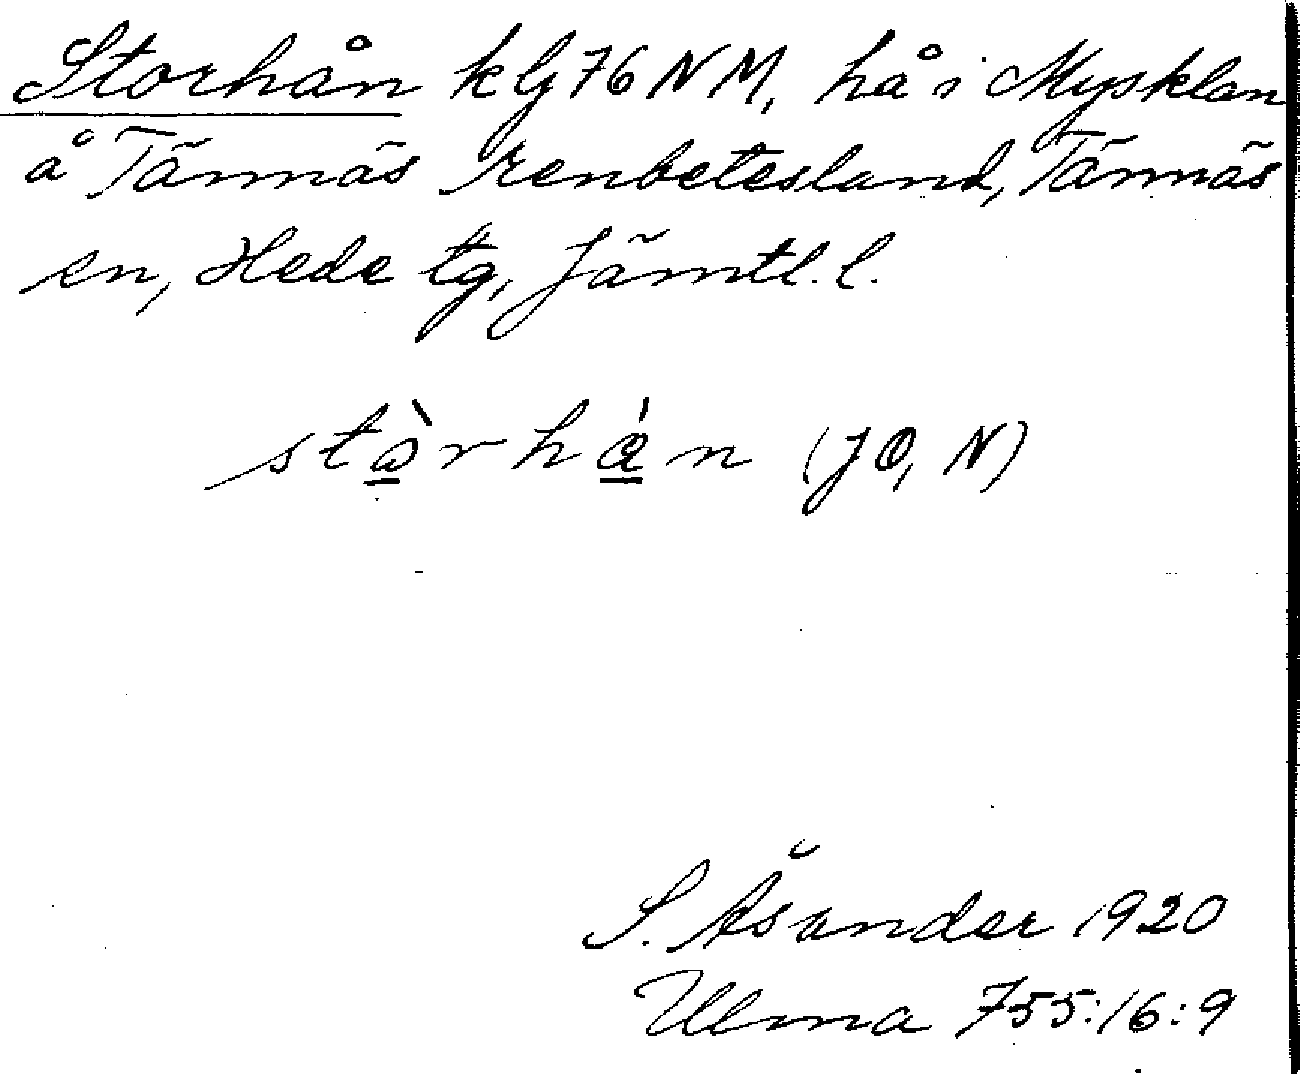 Storhån klj 76 NM, hå i Mysklan
å Tännäs renbetesland, Tännäs
sn, Hede tg, Jämtl. l.
stòrhán (JO, N)
S. Åsander 1920
Ulma 755:16:9